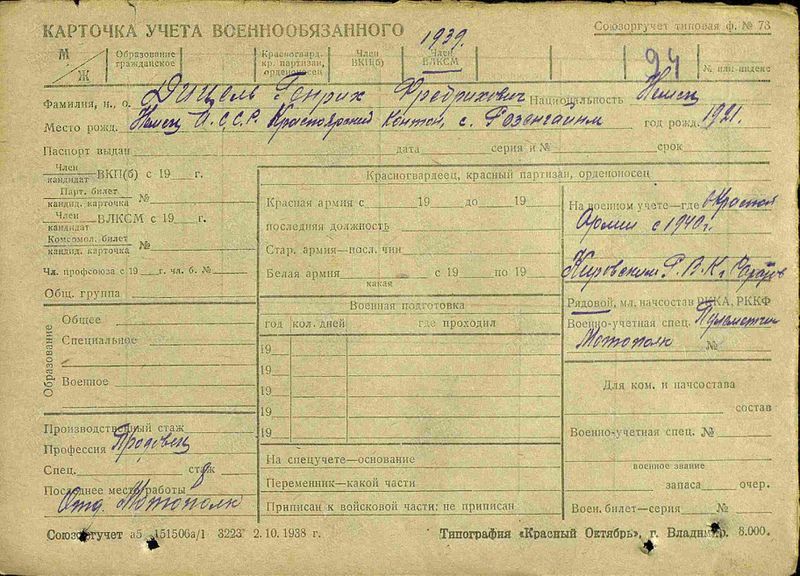 КАРТОЧКА УЧЕТА ВОЕННООБЯЗАННОГО
Союзоргучет типовая ф. № 73
М/Ж
Образование гражданское
Красногвард. кр. партизан, орденоносец
Член ВКП(б)
1939.
Член ВЛКСМ
94
№ или индекс
Фамилия, и., о. Дицель Генрих Фредрихович Национальность Немец
Место рожд. Немец А.С.С.Р. Красноярский Кантон, с. Розенгайм год рожд. 1921.
Паспорт выдан дата серия и № срок
Член
кандидат ВКП(б) с 19 г.
Парт. билет
кандид. карточка №
Член
кандидат ВЛКСМ с 19 г.
Комсомол. билет
кандид. карточка №
Чл. профсоюза с 19 г. чл. б. №
Общ. группа
Красногвардеец, красный партизан, орденоносец
Красная армия с 19 до 19
последняя должность
Стар. армия—посл. чин
Белая армия с 19 по 19
какая
На военном учете—где в Красной
Армии с 1940 г.
Кировским Р.В.К. г.
Рядовой, мл. начсостав РККА, РККФ
Военно-учетная спец. Пулеметчик
Мотополк №
Образование
Общее
Специальное
Военное
Военная подготовка
год кол. дней где проходил
19
19
19
19
19
Для ком. и начсостава
состав
Военно-учетная спец. №
военное звание
запаса очер.
Воен. билет—серия №
Производственный стаж
Профессия Продавец
Спец. стаж
Последнее место работы
Отд. Мотополк
На спецучете—основание
Переменник—какой части
Приписан к войсковой части: не приписан
Союзоргучет а5 151506а/1 3223 2.10.1938 г.
Типография «Красный Октябрь», г. Владимир. 8.000.